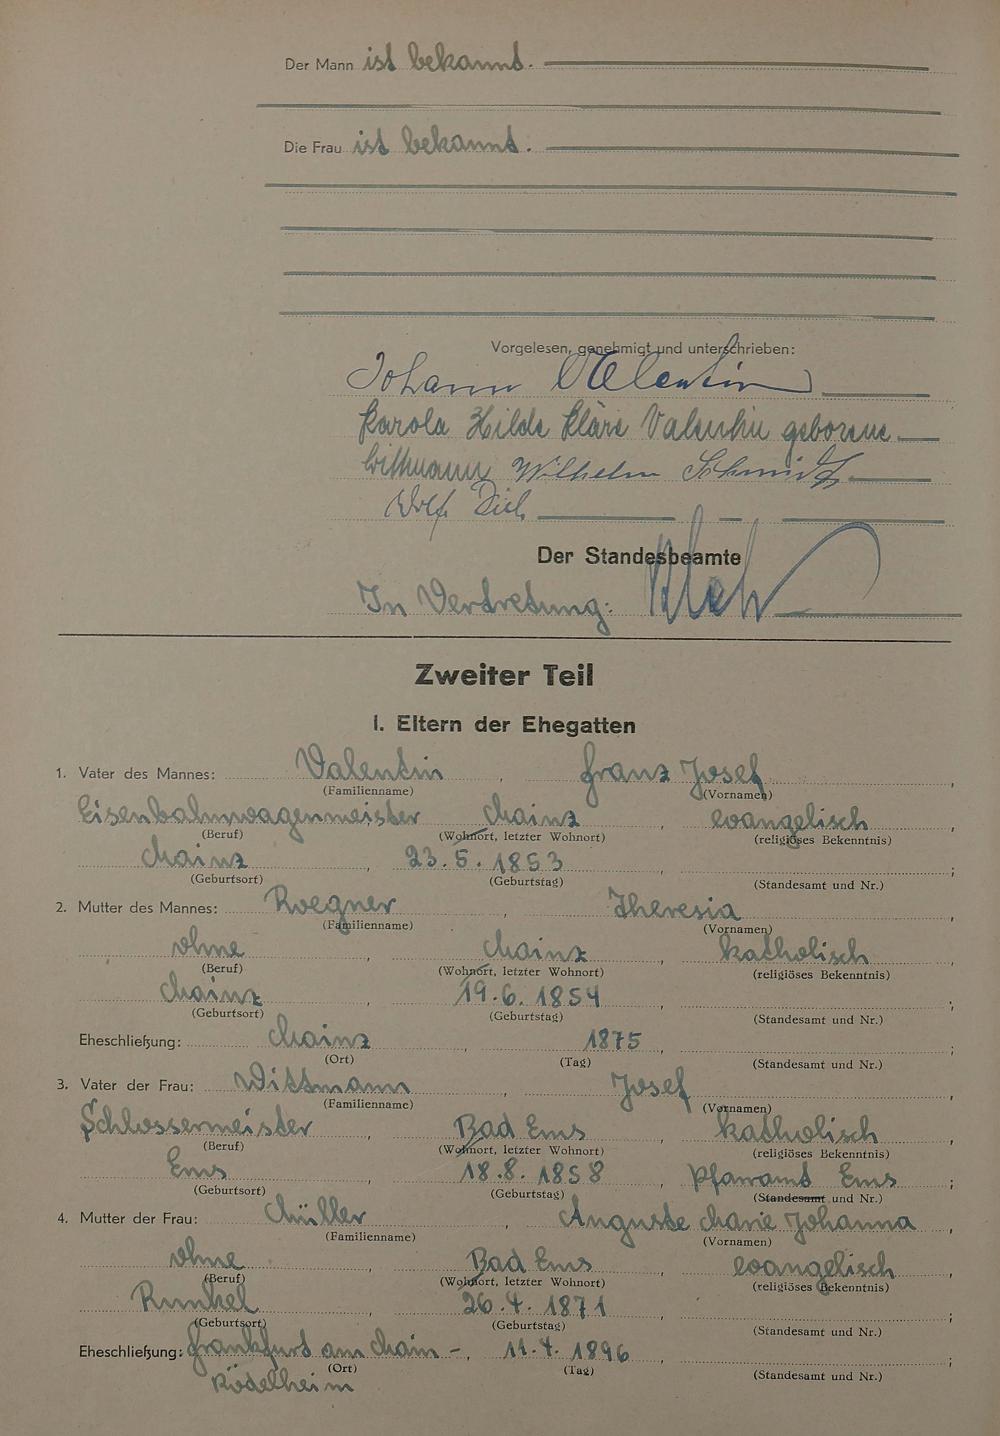 Der Mann ist bekannt.
Die Frau ist bekannt.
Vorgelesen, genehmigt und unterschrieben:
Johann Valentin
Karola Hilde Kläre Valentin geborene
Wittmann Wilhelm Schmidt
Wolf
Der Standesbeamte
In Vertretung:
Zweiter Teil
I. Eltern der Ehegatten
1. Vater des Mannes: Valentin, Franz Josef,
(Familienname) (Vornamen)
Eisenbahnwagenmeister, Mainz, evangelisch,
(Beruf) (Wohnort, letzter Wohnort) (religiöses Bekenntnis)
Mainz, 23.5.1853, ;
(Geburtsort) (Geburtstag) (Standesamt und Nr.)
2. Mutter des Mannes: Roegner, Theresia,
(Familienname) (Vornamen)
ohne, Mainz, katholisch,
(Beruf) (Wohnort, letzter Wohnort) (religiöses Bekenntnis)
Mainz, 19.6.1854, ;
(Geburtsort) (Geburtstag) (Standesamt und Nr.)
Eheschließung: Mainz, 1875, ;
(Ort) (Tag) (Standesamt und Nr.)
3. Vater der Frau: Wittmann, Josef,
(Familienname) (Vornamen)
Schlossermeister, Bad Ems, katholisch,
(Beruf) (Wohnort, letzter Wohnort) (religiöses Bekenntnis)
Ems, 18.8.1858, Pfarramt Ems ;
(Geburtsort) (Geburtstag) (Standesamt und Nr.)
4. Mutter der Frau: Müller, Auguste Marie Johanna,
(Familienname) (Vornamen)
ohne, Bad Ems, evangelisch,
(Beruf) (Wohnort, letzter Wohnort) (religiöses Bekenntnis)
Runkel, 26.4.1871, ;
(Geburtsort) (Geburtstag) (Standesamt und Nr.)
Eheschließung: Frankfurt am Main -, 11.4.1896, ;
(Ort) (Tag) (Standesamt und Nr.)
Rödelheim